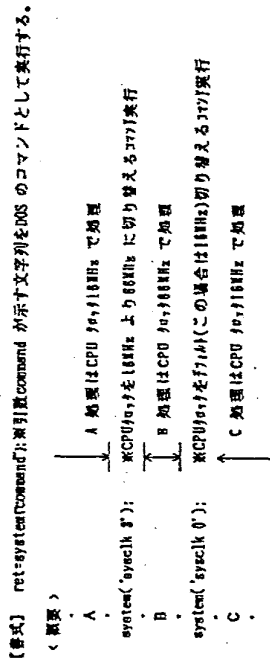 【書式】 ret=system("command"); ※引数command が示す文字列をDOS のコマンドとして実行する。
< 概要 >
A
A 処理はCPU クロック16MHz で処理
system('sysclk 8'); ※CPUクロックを16MHz より66MHz に切り替えるコマンド実行
B
B 処理はCPU クロック66MHz で処理
system('sysclk 0'); ※CPUクロックをデフォルト(この場合は16MHz)切り替えるコマンド実行
C
C 処理はCPU クロック16MHz で処理